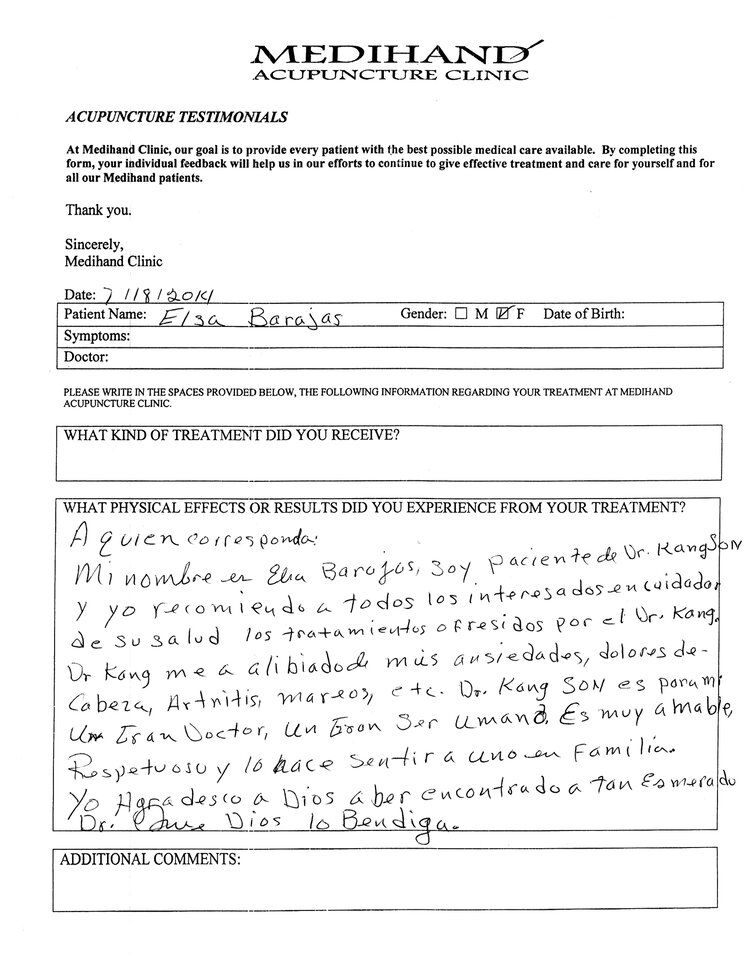 MEDIHAND
ACUPUNCTURE CLINIC
ACUPUNCTURE TESTIMONIALS
At Medihand Clinic, our goal is to provide every patient with the best possible medical care available. By completing this
form, your individual feedback will help us in our efforts to continue to give effective treatment and care for yourself and for
all our Medihand patients.
Thank you.
Sincerely,
Medihand Clinic
Date: 7/18/2014
Patient Name: Elsa Barajas Gender: ☐ M ☑ F Date of Birth:
Symptoms:
Doctor:
PLEASE WRITE IN THE SPACES PROVIDED BELOW, THE FOLLOWING INFORMATION REGARDING YOUR TREATMENT AT MEDIHAND
ACUPUNCTURE CLINIC.
WHAT KIND OF TREATMENT DID YOU RECEIVE?
WHAT PHYSICAL EFFECTS OR RESULTS DID YOU EXPERIENCE FROM YOUR TREATMENT?
A quien corresponda:
Mi nombre es Elsa Barajas, soy paciente de Dr. Kang SON
y yo recomiendo a todos los interesados en cuidados
de su salud los tratamientos ofresidos por el Dr. Kang.
Dr Kang me a alibiado de mis ansiedades, dolores de
Cabeza, Artritis, mareos, etc. Dr. Kang SON es para mi
Un Gran Doctor, Un Gran Ser Umano. Es muy amable,
Respetuoso y lo hace sentir a uno en Familia.
Yo Agradesco a Dios aber encontrado a tan Esmerado
Dr. Que Dios lo Bendiga.
ADDITIONAL COMMENTS: